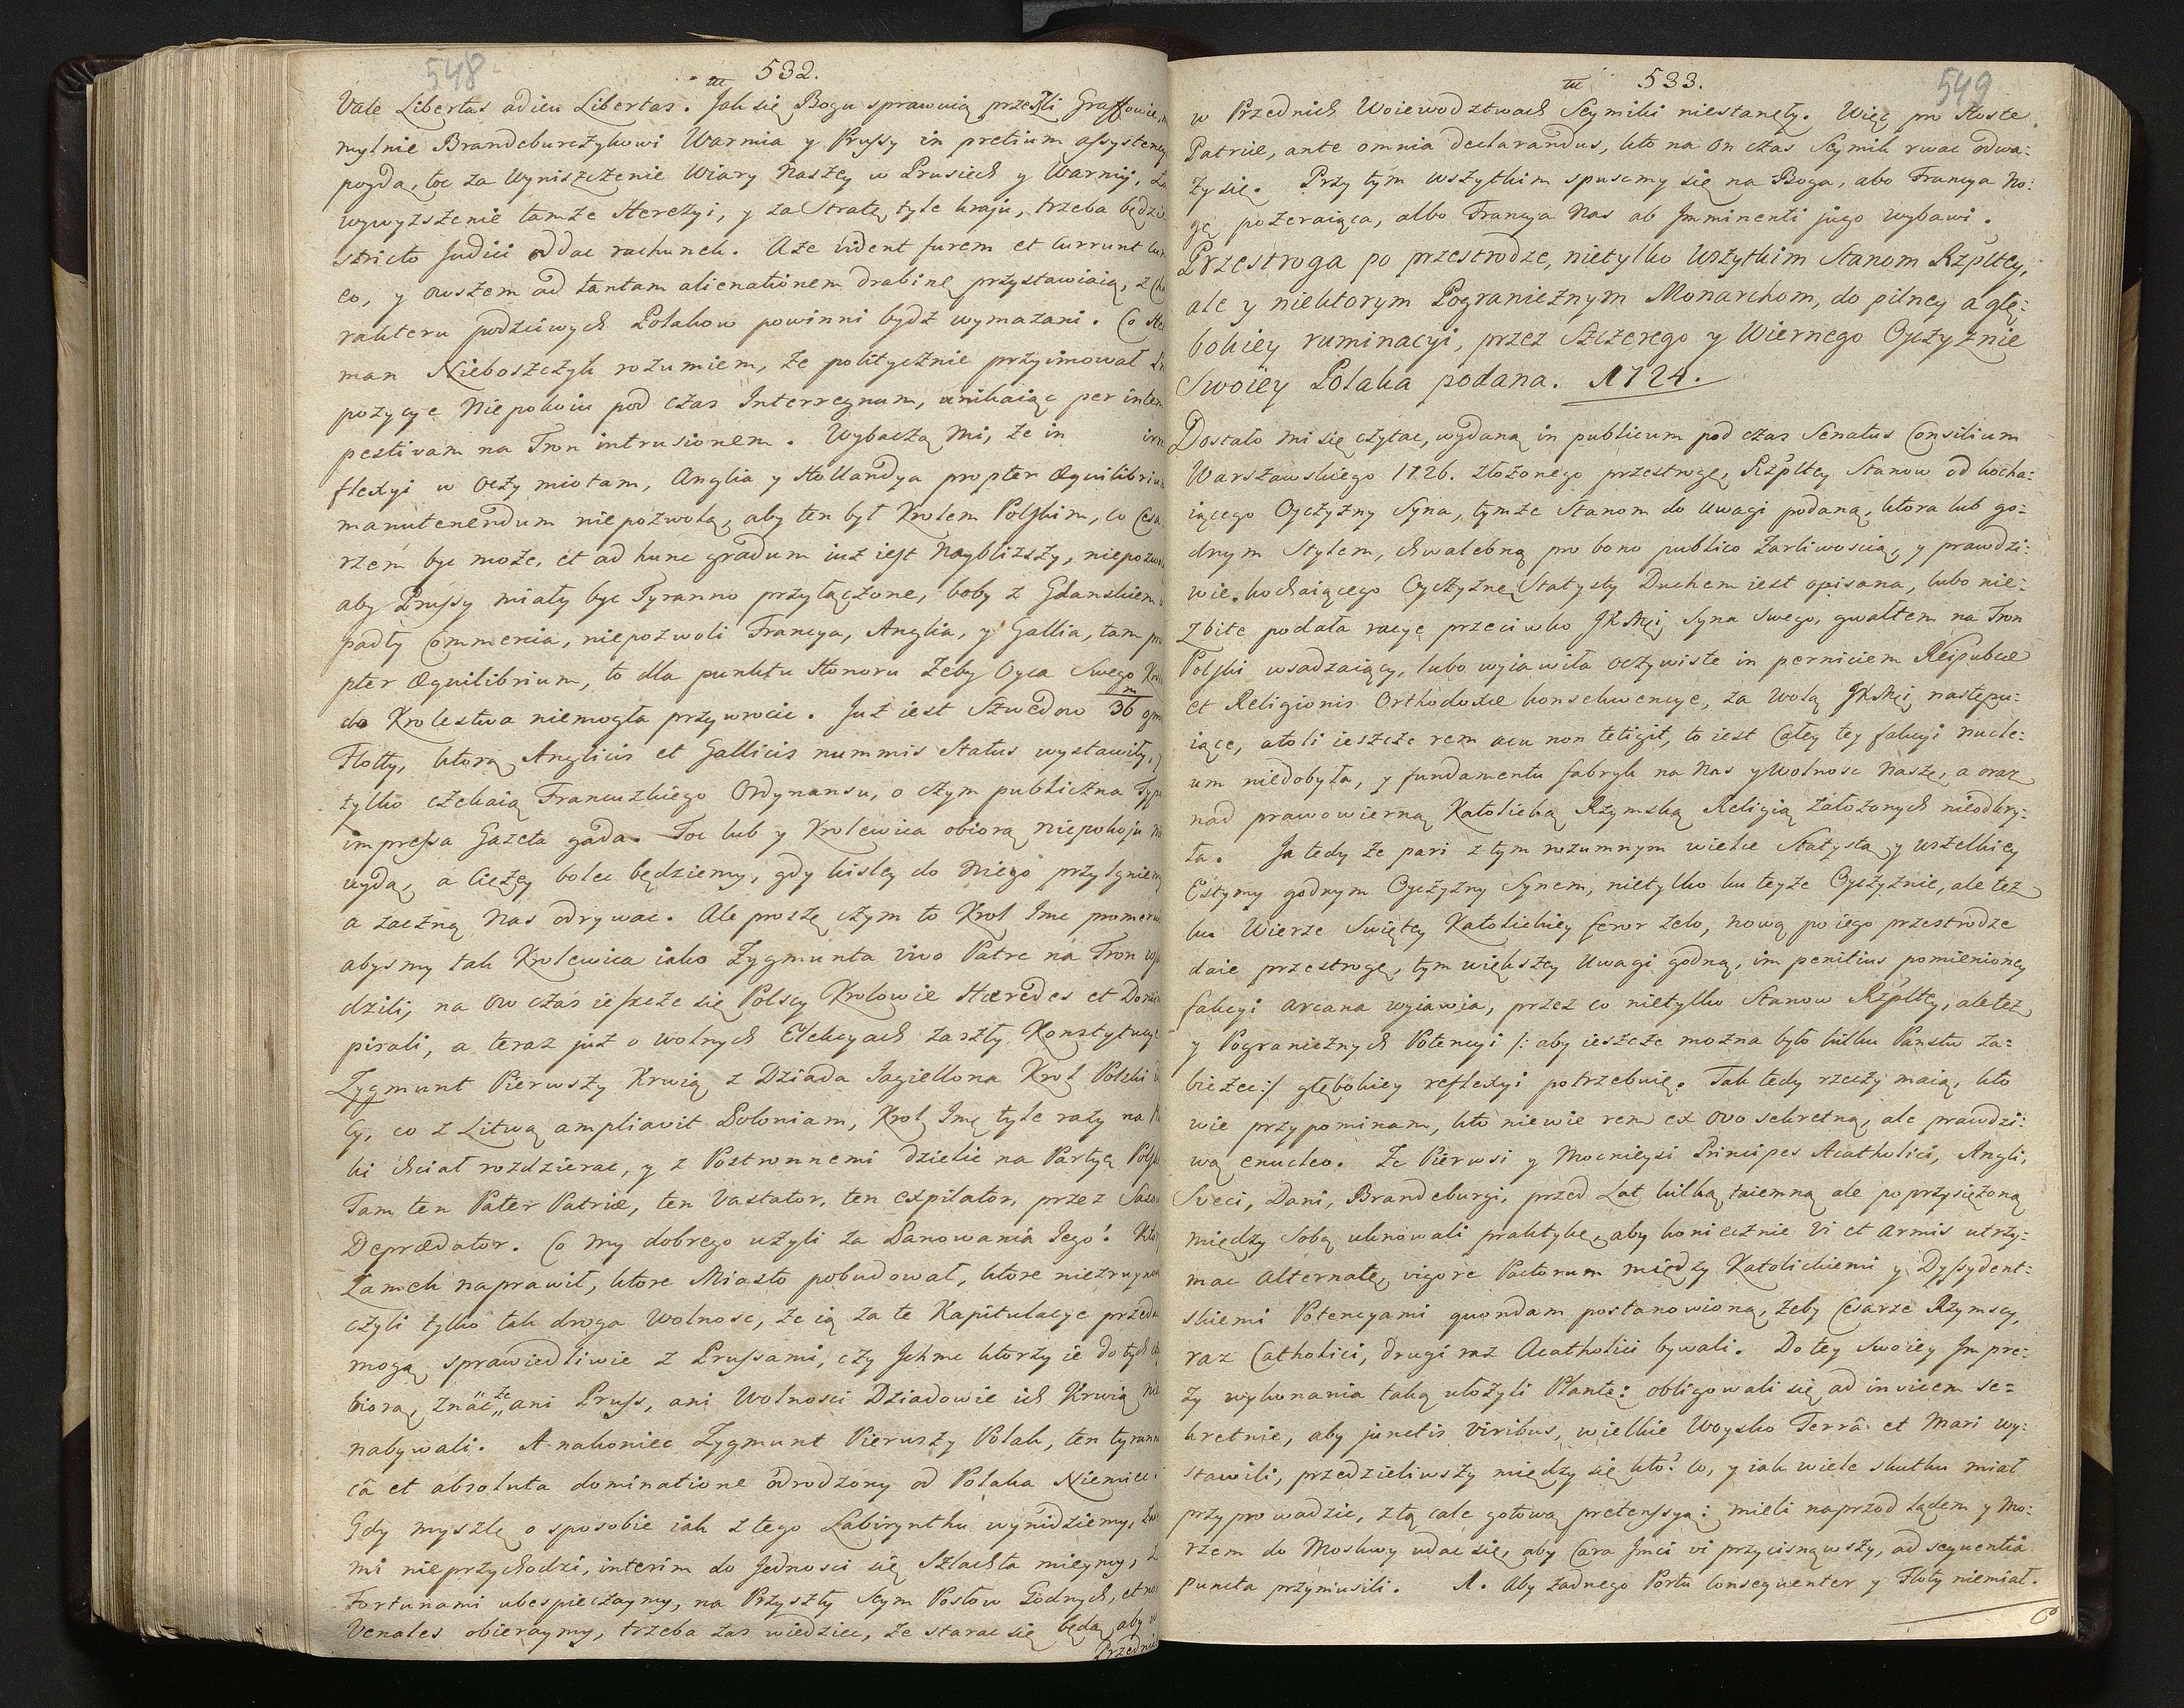 548
532.
Vale Libertas adieu Libertas. Jak się Bogu sprawuią przeszli Graffowie,
mylnie Brandeburczykowi Warmia y Prussy in pretium assystency
poyda, toc za wyniszczenie Wiary Naszey w Prusiech y Warmij, za
wywyższenie tamże Herezyi, y za Stratę tyle kraju, trzeba będzie
stricto Judici oddac rachunek. Aże vident furem et currunt cum
eo, y owszem ad tantam alienationem drabinę przystawiaią, z Cha
rakteru podściwych Polakow powinni bydz wymazani. Co Het
man Nieboszczyk rozumiem, że politycznie przyimował
pozycye Niepokoiu pod czas Interregnum, unikaiąc per intem
pestivam na Tron intrusionem. Wybaczą mi, że in
flexyi w oczy miotam, Anglia y Hollandya propter Æquilibrium
manutenendum niepozwolą, aby ten był Krolem Polskim, co Cesa
rzem byc może, et ad hunc gradum iuż iest Naybliższy, niepozwolą
aby Prussy miały byc Tyranno przyłączone, boby z Gdanskiem
padły Commercia, niepozwoli Francya, Anglia, y Gallia, tam pro
pter Æquilibrium, to dla punktu Honoru żeby Oyca Swego
do Krolestwa niemogła przywrocic. Już iest Szwedow 36
Flotty, ktorą Anglicis et Gallicis nummis Status wystawiły,
tylko czekaią Francuzkiego Ordynansu, o czym publiczna Typis
impressa Gazeta gada. Toc lub y Krolewica obiorą niepokoju nie
uydą, a ciężey bolec będziemy, gdy kisley do Niego przylgniemy
a zaczną Nas odrywac. Ale proszę czym to Krol Imc promeruit
abysmy tak Krolewica iako Zygmunta vivo Patre na Tron wsa
dzili, na ow czas ieszcze się Polscy Krolowie Hæredes et Domini
pisali, a teraz już o wolnych Elekcyach zaszły Konstytucye
Zygmunt Pierwszy Krwią z Dziada Jagiellona Krol Polski
ły, co z Litwą ampliavit Poloniam, Krol Imc tyle razy na
ki chciał rozdzierac, y z Postronnemi dzielic na Partyę
Tam ten Pater Patriæ, ten Vastator, ten expilator, przez
Deprædator. Co my dobrego użyli za Panowania Jego!
Zamek naprawił, ktore Miasto pobudował, ktore niezruynował
czyli tylko tak droga Wolnosc, że ią za te Kapitulacye przeda
mogą sprawiedliwie z Prussami, czy Ichmc ktorzy ie do tych
biorą, Znac że ani Pruss, ani Wolnosci Dziadowie ich Krwią nie
nabywali. A nakoniec Zygmunt Pierwszy Polak, ten tyranni
câ et absoluta dominatione odrodzony od Polaka Niemiec.
Gdy myszlę o sposobie iak z tego Labirynthu wynidziemy,
mi nieprzychodzi, interim do Jednosci się Szlachta mieymy,
Fortunami ubespieczaymy, na Przyszły Seym Posłow Godnych, et non
Venales obieraymy, trzeba zas wiedziec, że starac się będą, aby w
Przednich
549
533.
w Przednich Woiewodztwach Seymiki niestanęły. Więc pro Hoste
Patriæ, ante omnia declarandus, kto na on czas Seymik rwac odwa:
ży się. Przy tym wszytkim spuscmy się na Boga, abo Francya No:
gę pożeraiąca, albo Francya Nas ab Imminenti jugo wybawi.
Przestroga po przestrodze, nietylko wszytkim Stanom Rzpltey,
ale y niektorym Pogranicznym Monarchom, do pilney a głę:
bokiey ruminacyi, przez Szczerego y Wiernego Oyczyznie
Swoiey Polaka podana. 1724.
Dostało mi się czytac, wydaną in publicum pod czas Senatus Consilium
Warszawskiego 1726. złożonego przestrogę, Rzpltey Stanow od kocha:
iącego Oyczyzny Syna, tymże Stanom do Uwagi podaną, ktora lub go:
dnym Stylem, chwalebną pro bono publico żarliwoscią, y prawdzi:
wie kochaiącego Oyczyznę Statysty Duchem iest opisana, lubo nie:
zbite podała racye przeciwko JKMci Syna Swego, gwałtem na Tron
Polski wsadzaiący, lubo wyiawiła oczywiste in perniciem Reipublicæ
et Religionis Orthodoxæ konsekwencye, za wolą JKMci następu:
iące, atoli ieszcze rem acu non tetigit, to iest całey tey fakcyi nucle:
um niedobyła, y fundamentu fabryk na Nas y Wolnosc Naszę, a oraz
nad prawowierną Katolicką Rzymską Religią założonych nieodkry:
ła. Ja tedy że pari z tym rozumnym wielce Statystą y wszelkiey
Estymy godnym Oyczyzny Synem, nietylko ku teyże Oyczyznie, ale też
ku Wierze Swiętey Katolickiey feror zelo, nową po iego przestrodze
daie przestrogę, tym większey Uwagi godną, im penitius pomienioney
fakcyi arcana wyiawia, przez co nietylko Stanow Rzpltey, ale też
y Pogranicznych Potencyi /: aby ieszcze można było kilku Panstw za=
bieżec :/ głębokiey reflexyi potrzebuię. Tak tedy rzeczy maią, kto
wie przypominam, kto niewie rem ex ovo sekretną, ale prawdzi:
wą enucleo. Że Pierwsi y Mocnieysi Principes Acatholici, Angli,
Sveci, Dani, Brandeburgi, przed Lat kilką taiemną ale poprzysiężoną
między Sobą uknowali praktykę, aby koniecznie vi et armis utrzy:
mac Alternatę, vigore Pactorum między Katolickiemi y Dyssydent:
skiemi Potencyami quondam postanowioną, żeby Cesarze Rzymscy,
raz Catholici, drugi raz Acatholici bywali. Do tey Swoiey Impre:
zy wykonania taką ułożyli Plantę: obligowali się ad invicem se=
kretnie, aby junctis viribus, wielkie Woysko Terrâ et Mari wy:
stawili, przedzieliwszy między się kto? co, y iak wiele skutku miał
przyprowadzic, z tą cale gotową pretenssyą: mieli naprzod Lądem y Mo:
rzem do Moskwy udac się, aby Cara Jmci vi przycisnąwszy, ad sequentia
puncta przymusili. 1. Aby żadnego Portu consequenter y Floty niemiał.